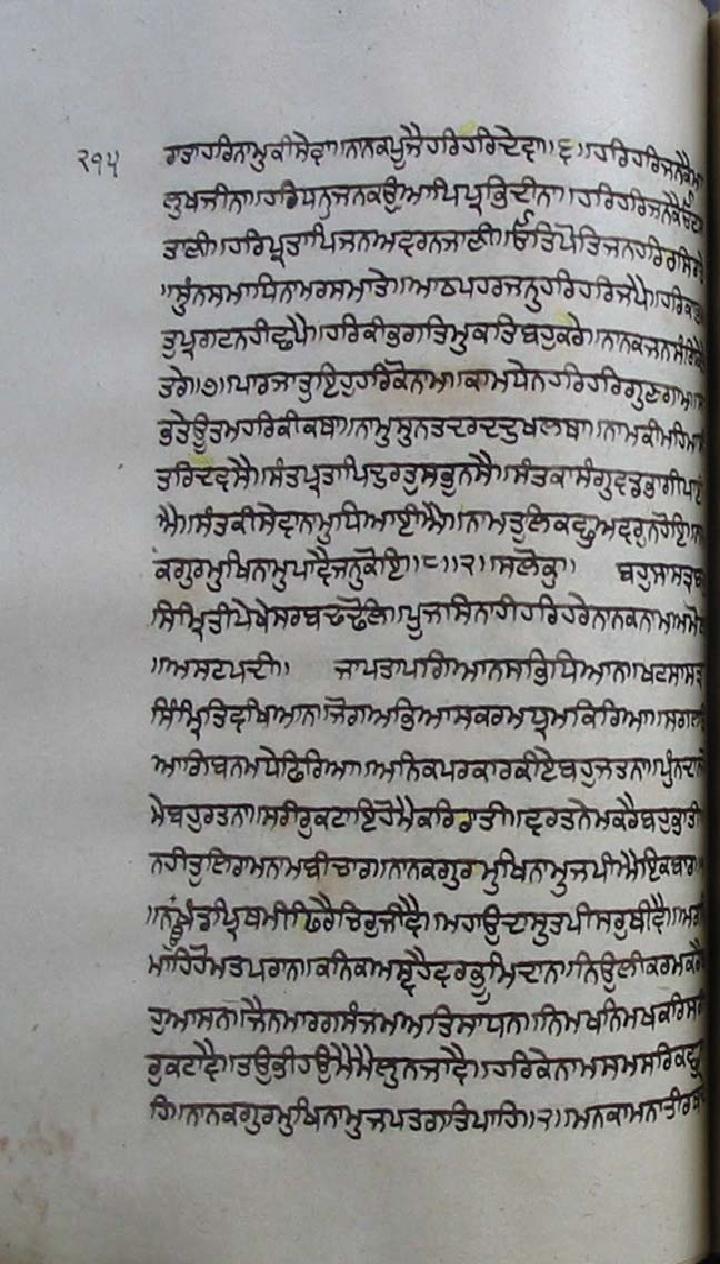 ੨੧੫
ਗਤਾਹਰਿਨਾਮੁਕੀਸੇਵਾ॥ਨਾਨਕਪੂਜੈਹਰਿਹਰਿਦੇਵਾ॥੬॥ਹਰਿਹਰਿਜਨਕੈਮਾ
ਲੁਖਜੀਨਾ॥ਹਰਿਧਨੁਜਨਕਉਆਪਿਪ੍ਰਭਿਦੀਨਾ॥ਹਰਿਹਰਿਜਨਕੈ
ਤਾਣੀ॥ਹਰਿਪ੍ਰਤਾਪਿਜਨਅਵਰਨਜਾਣੀ॥ਓਤਿਪੋਤਿਜਨਹਰਿਰਸਿ
॥ਸੁੰਨਸਮਾਧਿਨਾਮਰਸਮਾਤੇ॥ਆਠਪਹਰਜਨੁਹਰਿਹਰਿਜਪੈ॥ਹਰਿਕਾ
ਤੁਪ੍ਰਗਟਨਹੀਛਪੈ॥ਹਰਿਕੀਭਗਤਿਮੁਕਤਿਬਹੁਕਰੇ॥ਨਾਨਕਜਨਸੰਗਿ
ਤਰੇ॥੭॥ਪਾਰਜਾਤੁਇਹੁਹਰਿਕੋਨਾਮ॥ਕਾਮਧੇਨਹਰਿਹਰਿਗੁਣਗਾਮ॥ਸ
ਭਤੇਊਤਮਹਰਿਕੀਕਥਾ॥ਨਾਮੁਸੁਨਤਦਰਦਦੁਖਲਥਾ॥ਨਾਮਕੀਮਹਿਮਾ
ਤਰਿਦਵਸੈ॥ਸੰਤਪ੍ਰਤਾਪਿਦੁਰਤੁਸਭੁਨਸੈ॥ਸੰਤਕਾਸੰਗੁਵਡਭਾਗੀਪਾਈ
ਐ॥ਸੰਤਕੀਸੇਵਾਨਾਮੁਧਿਆਈਐ॥ਨਾਮਤੁਲਿਕਛੁਅਵਰੁਨਹੋਇ॥ਨਾ
ਕਗੁਰਮੁਖਿਨਾਮੁਪਾਵੈਜਨੁਕੋਇ॥੮॥੨॥ਸਲੋਕੁ॥ ਬਹੁਸਾਸਤ੍ਰਬ
ਸਿਮ੍ਰਿਤੀਪੇਖੇਸਰਬਢਢੋਲਿ॥ਪੂਜਸਿਨਾਹੀਹਰਿਹਰੇਨਾਨਕਨਾਮਅਮੋਲ
॥ਅਸਟਪਦੀ॥ ਜਾਪਤਾਪਗਿਆਨਸਭਿਧਿਆਨ॥ਖਟਸਾਸਤ੍ਰ
ਸਿੰਮ੍ਰਿਤਿਵਖਿਆਨ॥ਜੋਗਅਭਿਆਸਕਰਮਧ੍ਰਮਕਿਰਿਆ॥ਸਗਲਤਿ
ਆਗਿਬਨਮਧੇਫਿਰਿਆ॥ਅਨਿਕਪਰਕਾਰਕੀਏਬਹੁਜਤਨਾ॥ਪੁੰਨਦਾਨ
ਮੇਬਹੁਰਤਨਾ॥ਸਰੀਰੁਕਟਾਇਹੋਮੈਕਰਿਰਾਤੀ॥ਵਰਤਨੇਮਕਰੈਬਹੁਭਾਤੀ
ਨਹੀਤੁਲਿਰਾਮਨਾਮਬੀਚਾਰ॥ਨਾਨਕਗੁਰਮੁਖਿਨਾਮੁਜਪੀਐਇਕਬਾਰ॥
॥ਨਉਖੰਡਪ੍ਰਿਥਮੀਫਿਰੈਚਿਰੁਜੀਵੈ॥ਮਹਾਉਦਾਸੁਤਪੀਸਰੁਥੀਵੈ॥ਅਗ
ਮਾਹਿਹੋਮਤਪਰਾਨ॥ਕਨਿਕਅਸ੍ਵਹੈਵਰਭੂਮਿਦਾਨ॥ਨਿਉਲੀਕਰਮਕਰੈ
ਹੁਆਸਨ॥ਜੈਨਮਾਰਗਸੰਜਮਅਤਿਸਾਧਨ॥ਨਿਮਖਨਿਮਖਕਰਿਸਰੀ
ਰੁਕਟਾਵੈ॥ਤਉਭੀਹਉਮੈਮੈਲੁਨਜਾਵੈ॥ਹਰਿਕੇਨਾਮਸਮਸਰਿਕਛੁ
ਹਿ॥ਨਾਨਕਗੁਰਮੁਖਿਨਾਮੁਜਪਤਗਤਿਪਾਹਿ॥੨॥ਮਨਕਾਮਨਾਤੀਰਥ